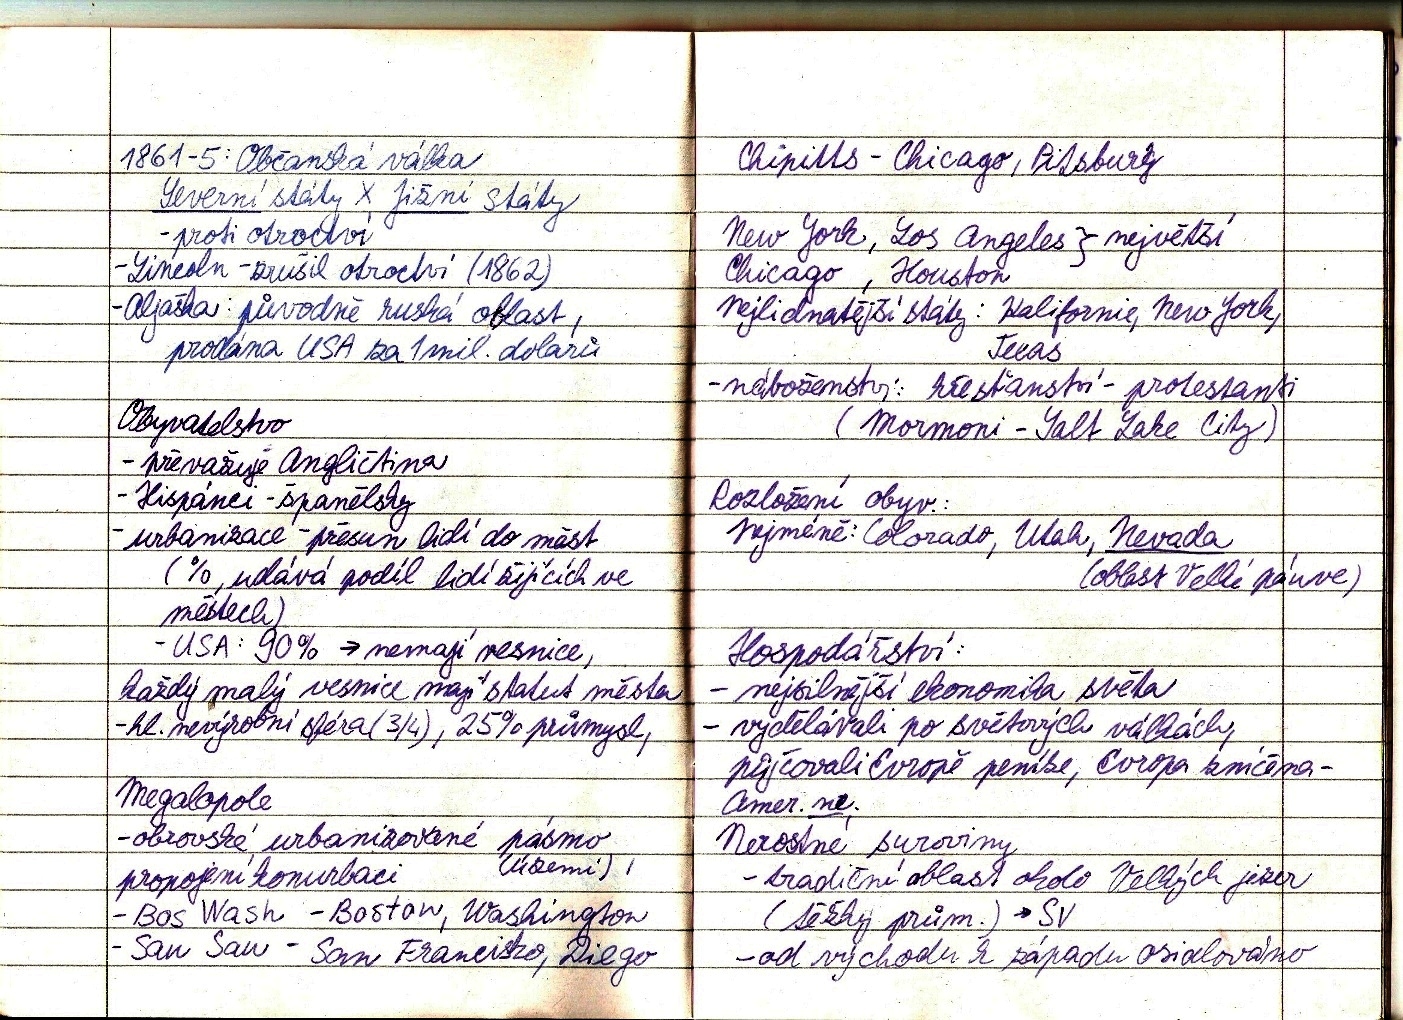 1861-5: Občanská válka
Severní státy X Jižní státy
- proti otroctví
- Lincoln - zrušil otroctví (1862)
- Aljaška: původně ruská oblast,
prodána USA za 1 mil. dolarů
Obyvatelstvo
- převažuje Angličtina
- Hispánci - španělsky
- urbanizace - přesun lidí do měst
(%, udává podíl lidí žijících ve
městech)
- USA: 90% → nemají vesnice,
každý malý vesnice mají statut města
- hl. nevýrobní sféra (3/4), 25% průmysl,
Megalopole
- obrovské urbanizované pásmo
propojení konurbací (území),
- Bos Wash - Boston, Washington
- San San - San Francisko, Diego
Chipitts - Chicago, Pitsburg
New York, Los Angeles } největší
Chicago, Houston
Nejlidnatější státy: Kalifornie, New York,
Texas
- náboženství: křesťanství - protestanti
(Mormoni - Salt Lake City)
Rozložení obyv.:
Nejméně: Colorado, Utah, Nevada
(oblast Velké pánve)
Hospodářství:
- nejsilnější ekonomika světa
- vydělávali po světových válkách,
půjčovali Evropě peníze, Evropa zničena -
Amer. ne.
Nerostné suroviny
- tradiční oblast okolo Velkých jezer
(těžký prům.) → SV
- od východu k západu osidlováno